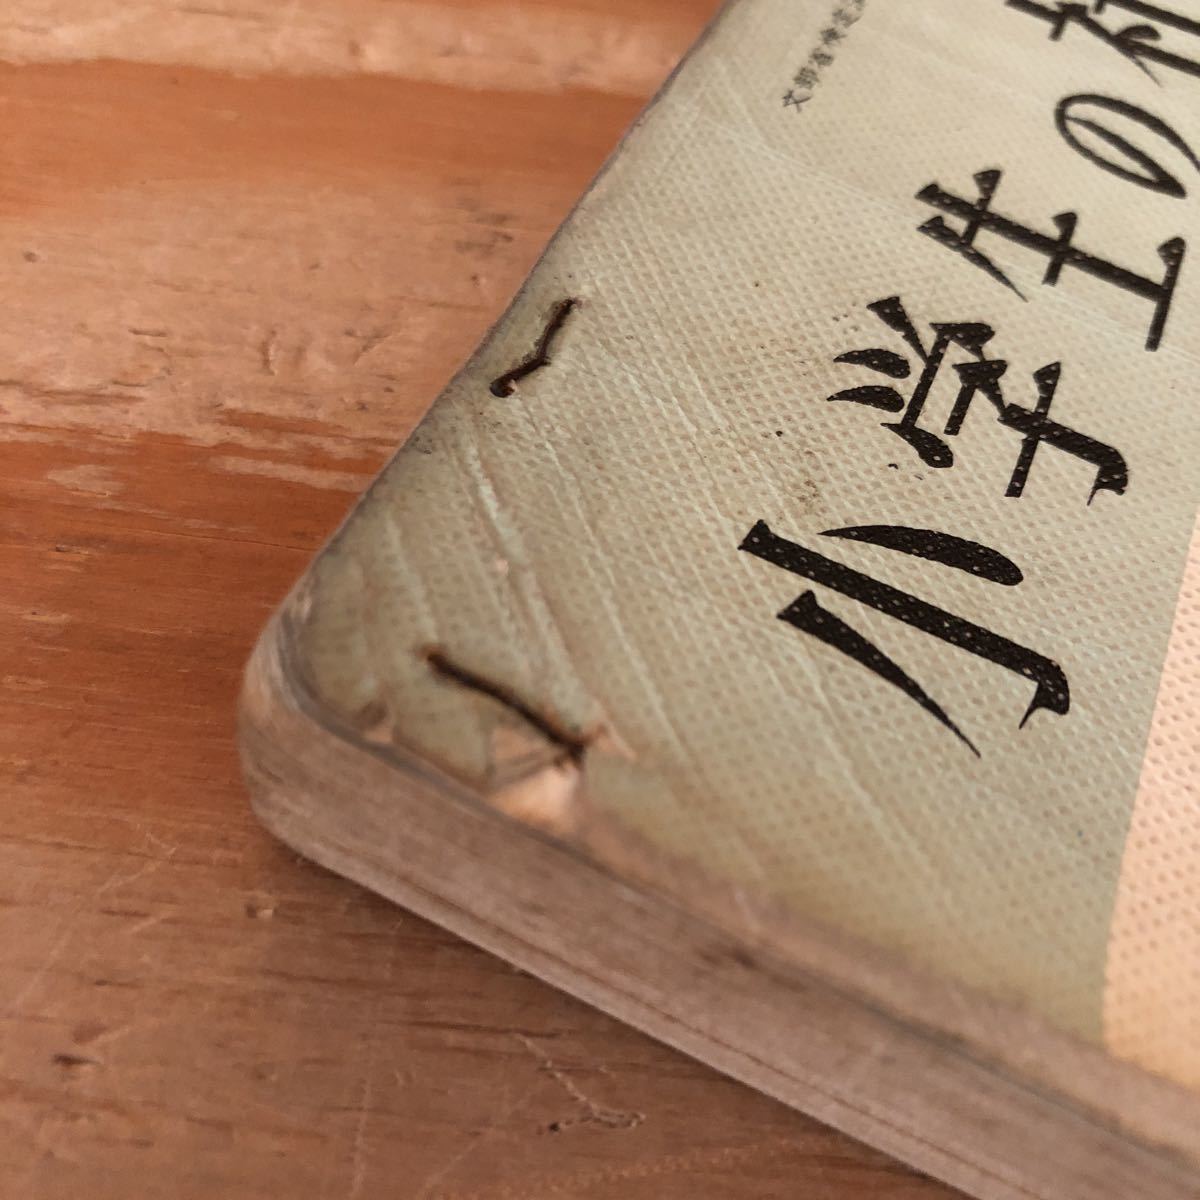 小学生の科
文部省検定済